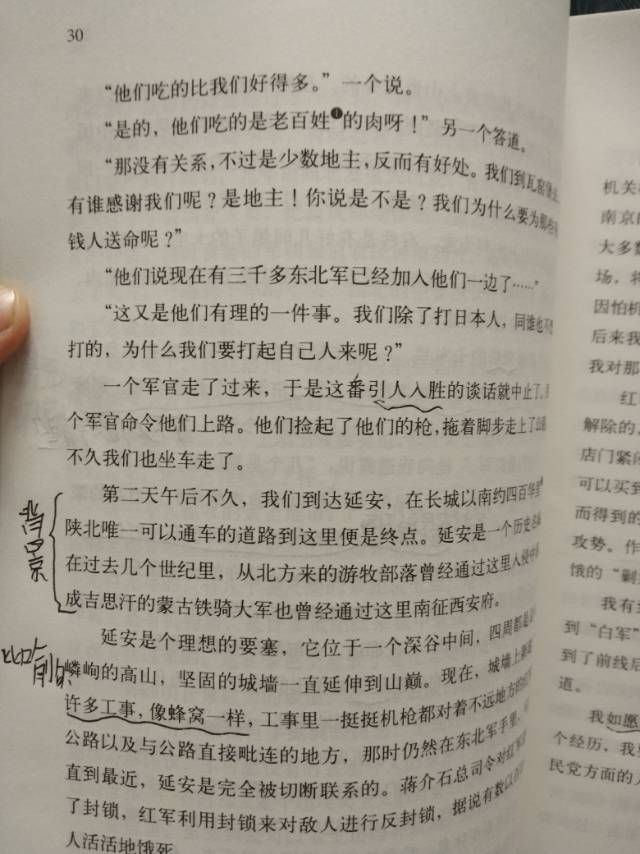 30
“他们吃的比我们好得多。”一个说。
“是的，他们吃的是老百姓❶的肉呀！”另一个答道。
“那没有关系，不过是少数地主，反而有好处。我们到瓦窑堡去，
有谁感谢我们呢？是地主！你说是不是？我们为什么要为那些
钱人送命呢？”
“他们说现在有三千多东北军已经加入他们一边了……”
“这又是他们有理的一件事。我们除了打日本人，同谁也不
打的，为什么我们要打起自己人来呢？”
一个军官走了过来，于是这番引人入胜的谈话就中止了。
个军官命令他们上路。他们捡起了他们的枪，拖着脚步走上了
不久我们也坐车走了。
第二天午后不久，我们到达延安，在长城以南约四百华里
陕北唯一可以通车的道路到这里便是终点。延安是一个历史
在过去几个世纪里，从北方来的游牧部落曾经通过这里入侵中
成吉思汗的蒙古铁骑大军也曾经通过这里南征西安府。
背景
延安是个理想的要塞，它位于一个深谷中间，四周都是
嶙峋的高山，坚固的城墙一直延伸到山巅。现在，城墙上
许多工事，像蜂窝一样，工事里一挺挺机枪都对着不远地方的
公路以及与公路直接毗连的地方，那时仍然在东北军手里，
直到最近，延安是完全被切断联系的。蒋介石总司令对红军
了封锁，红军利用封锁来对敌人进行反封锁，据说有数以
人活活地饿死
机关
南京的
大多数
场，将
因怕机
后来我
我对那
红
解除的、
店门紧闭
可以买到
而得到的
攻势。作
饿的“剿
我有
到“白军”
到了前线后
道。
我如愿
个经历，我
民党方面的人